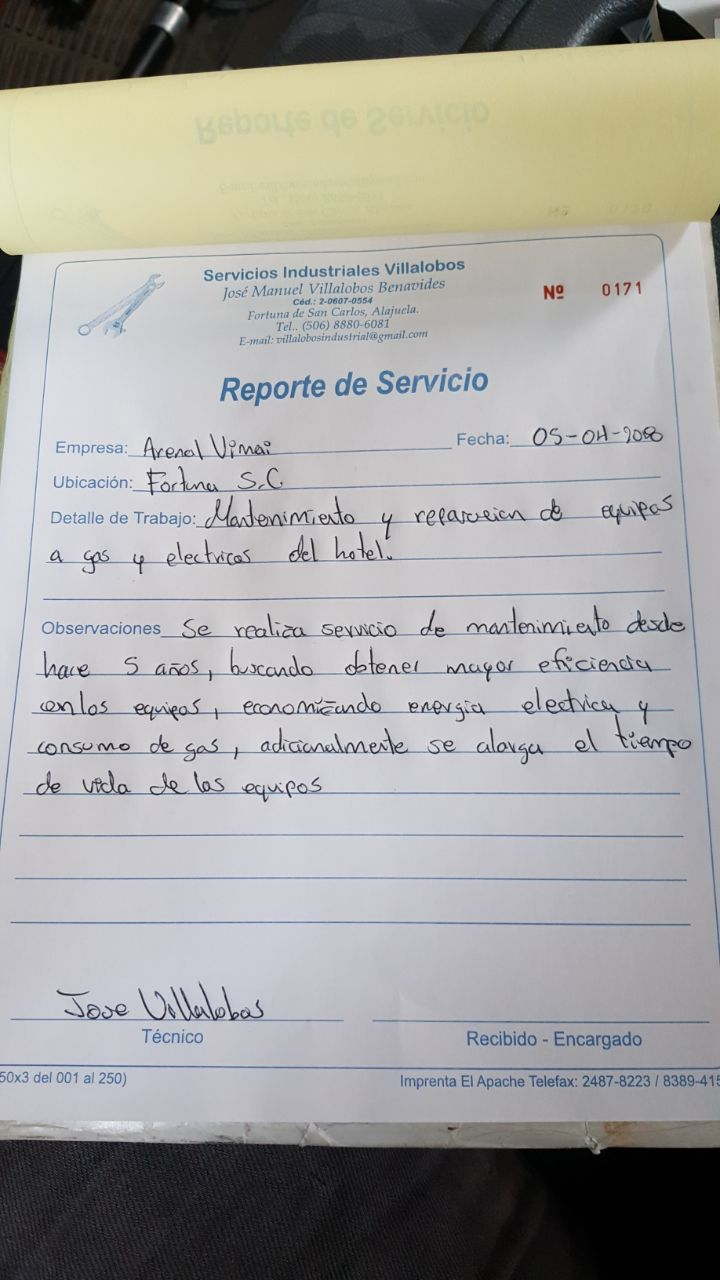 Reporte de Servicio
Servicios Industriales Villalobos
José Manuel Villalobos Benavides
Céd.: 2-0607-0554
Fortuna de San Carlos, Alajuela.
Tel.. (506) 8880-6081
E-mail: villalobosindustrial@gmail.com
Nº 0171
Reporte de Servicio
Empresa: Arenal Vimai Fecha: 05-04-
Ubicación: Fortuna S.C
Detalle de Trabajo: Mantenimiento y reparacion de equipos
a gas y electricos del hotel.
Observaciones Se realiza servicio de mantenimiento desde
hace 5 años, buscando obtener mayor eficiencia
en los equipos, economizando energia electrica y
consumo de gas, adicionalmente se alarga el tiempo
de vida de los equipos
Jose Villalobos
Técnico
Recibido - Encargado
50x3 del 001 al 250)
Imprenta El Apache Telefax: 2487-8223 / 8389-415